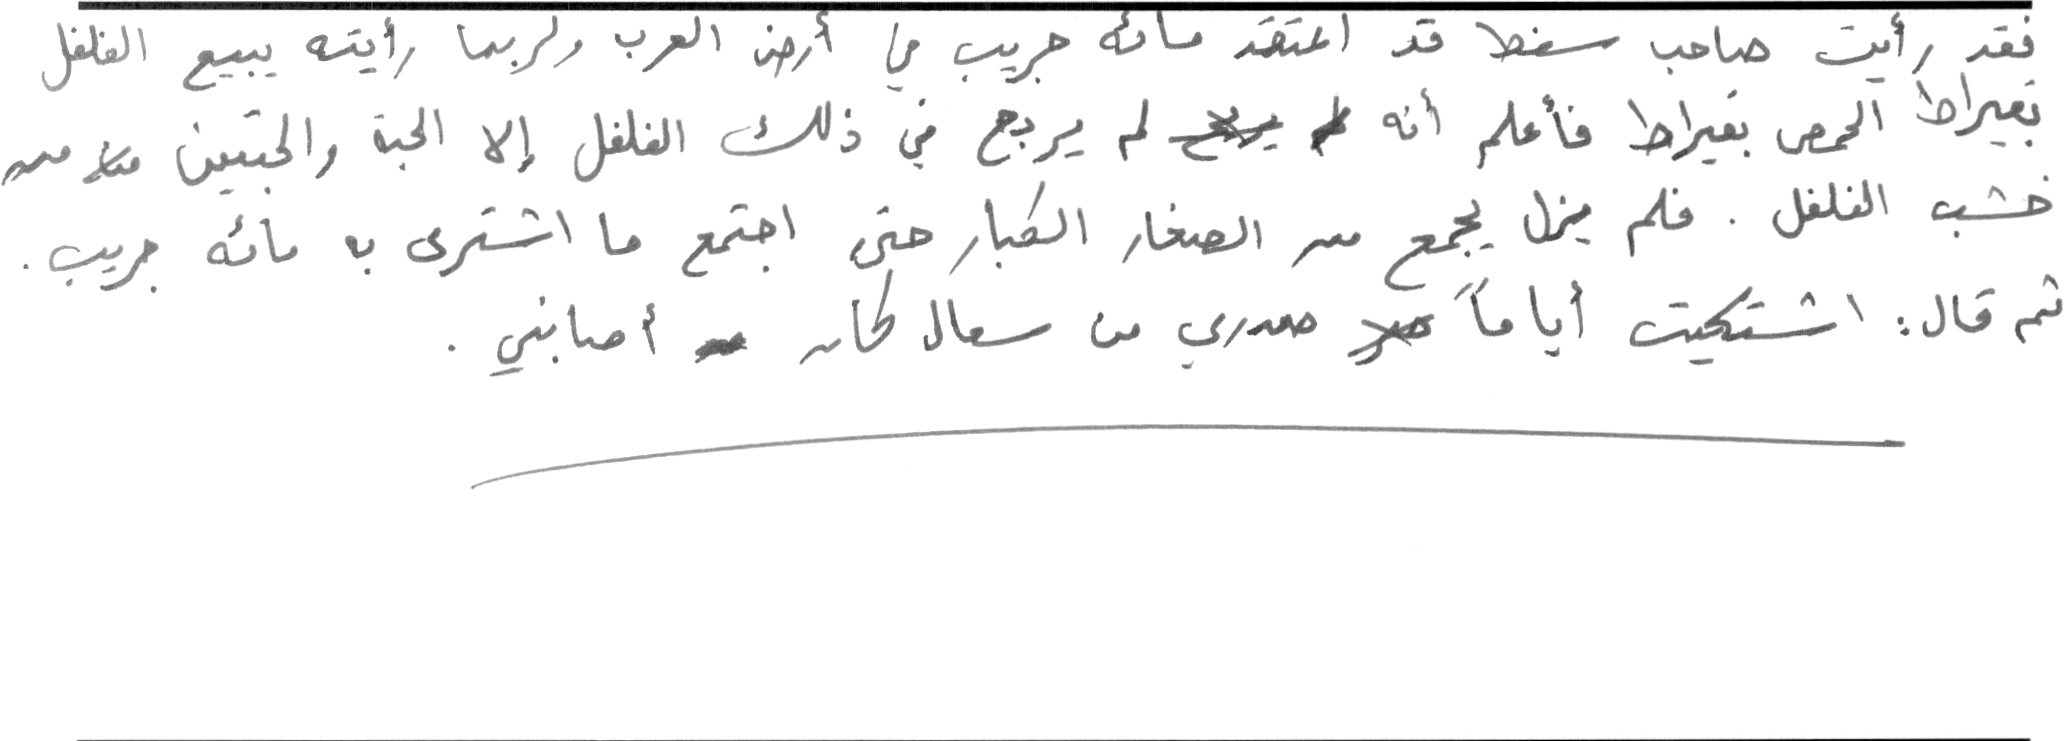 فقد رأيت صاحب سفط قد اعتقد مائه جريب في أرض العرب ولربما رأيته يبيع الفلفل
بقيراط الحمص بقيراط فأعلم أنه لم يربح في ذلك الفلفل إلا الحبة والحبتين من
خشب الفلفل . فلم يزل يجمع من الصغار الكبار حتى اجتمع ما اشترى به مائه جريب .
ثم قال : اشتكيت أياماً صدري من سعال كان أصابني .